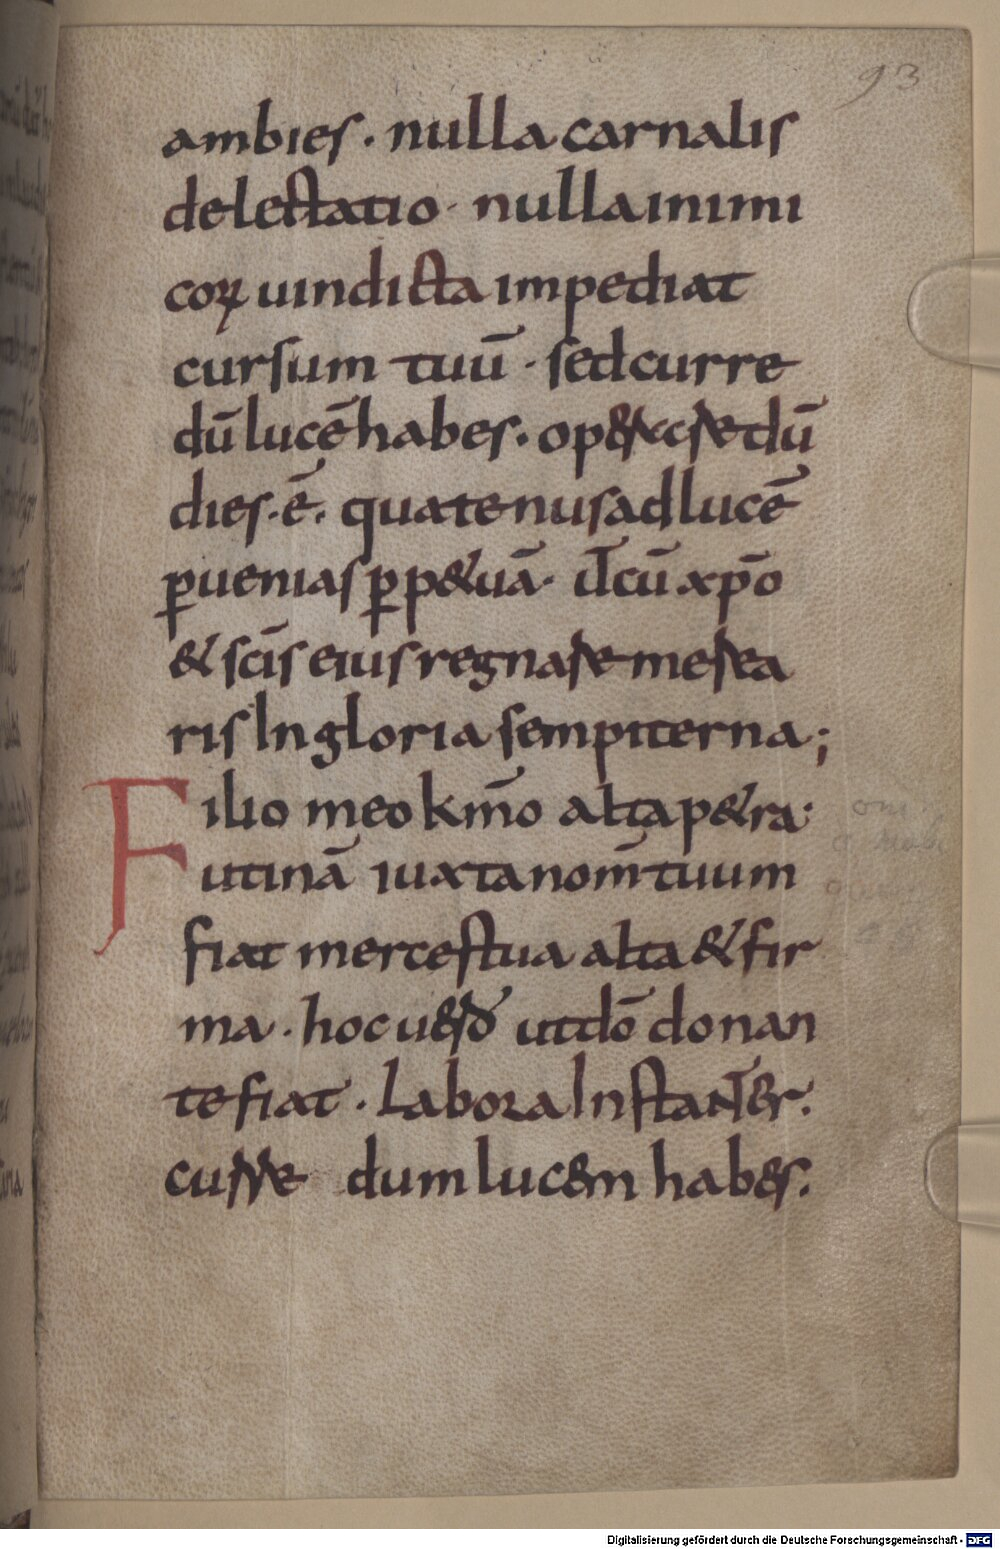 93
ambies · nulla carnalis
delectatio · nulla inimi
coꝝ uindicta impediat
cursum tuū · sed curre
dū lucē habes · op&rare dū
dies · ē · quatenus ad lucē
ꝑuenias ꝑp&uā · ut cū xp̄o
& sc̄is eius regnare merea
ris In gloria sempiterna ;
Filio meo km̄o alta p&ra ·
utinā iuxta nom̄ tuum
fiat merces tua alta & fir
ma · hoc uero ut dō donan
te fiat · Labora Instanter ·
curre dum lucem habes ·
Digitalisierung gefördert durch die Deutsche Forschungsgemeinschaft - DFG